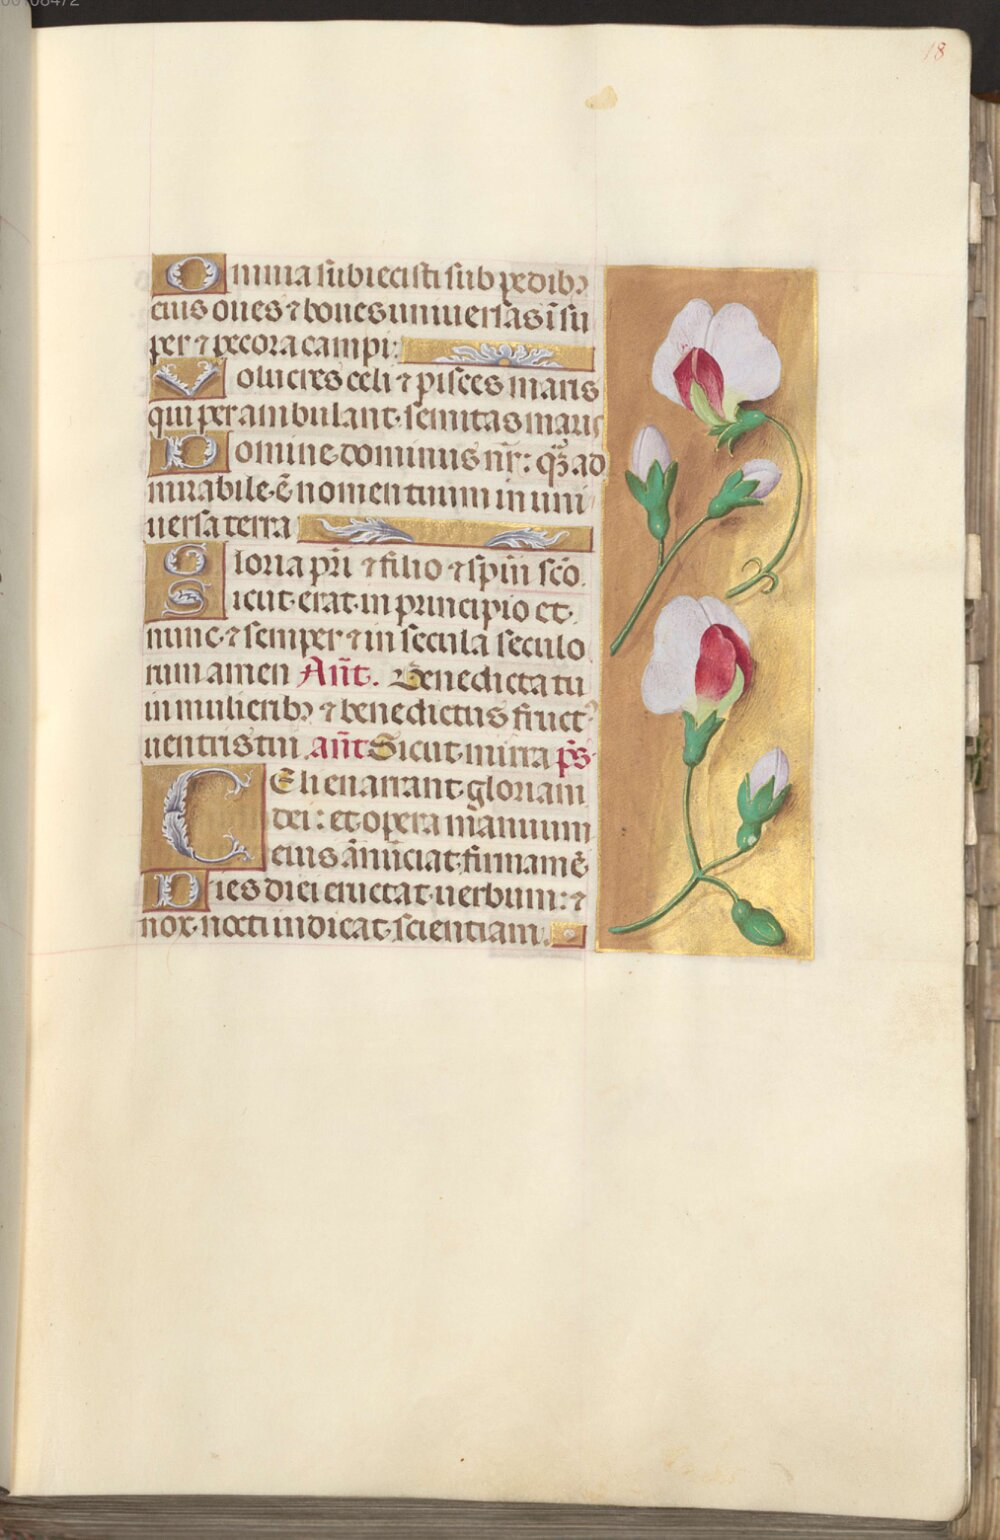 18
Omnia subiecisti sub pedibꝰ
eius oues ⁊ boues uniuersas ĩsu
per ⁊ pecora campi:
Volucres celi ⁊ pisces maris
qui perambulant semitas maris
Domine dominus nr̄: qꝫ ad
mirabile ē nomen tuum in uni
uersa terra
Gloria pr̄i ⁊ filio ⁊ spūi scō.
Sicut erat in principio et
nunc ⁊ semper ⁊ in secula seculo
rum amen Añt. Benedicta tu
in mulieribꝰ ⁊ benedictus fruct᾽
uentris tui añt Sicut mirra p̄s
Celi enarrant gloriam
dei: et opera manuum
eius ānūciat firmamē
Dies diei eructat uerbum: ⁊
nox nocti indicat scientiam.